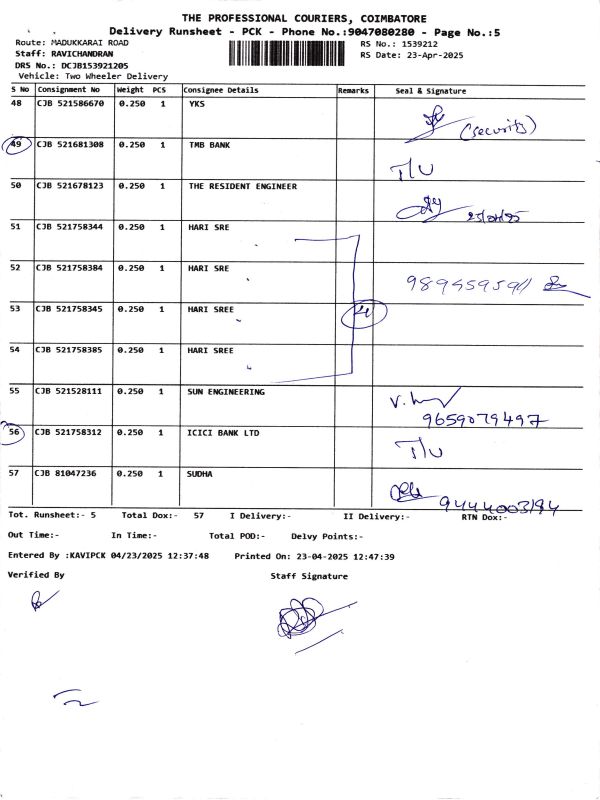 THE PROFESSIONAL COURIERS, COIMBATORE
Delivery Runsheet - PCK - Phone No.:9047080280 - Page No.:5
Route: MADUKKARAI ROAD
Staff: RAVICHANDRAN
DRS No.: DCJB153921205
Vehicle: Two Wheeler Delivery
RS No.: 1539212
RS Date: 23-Apr-2025
S No Consignment No Weight PCS Consignee Details Remarks Seal & Signature
48 CJB 521586670 0.250 1 YKS (security)
49 CJB 521681308 0.250 1 TMB BANK T/U
50 CJB 521678123 0.250 1 THE RESIDENT ENGINEER
51 CJB 521758344 0.250 1 HARI SRE
52 CJB 521758384 0.250 1 HARI SRE
53 CJB 521758345 0.250 1 HARI SREE
54 CJB 521758385 0.250 1 HARI SREE
55 CJB 521528111 0.250 1 SUN ENGINEERING
9659079497
56 CJB 521758312 0.250 1 ICICI BANK LTD T/U
57 CJB 81047236 0.250 1 SUDHA
9444003194
Tot. Runsheet:- 5 Total Dox:- 57 I Delivery:- II Delivery:- RTN Dox:-
Out Time:- In Time:- Total POD:- Delvy Points:-
Entered By :KAVIPCK 04/23/2025 12:37:48 Printed On: 23-04-2025 12:47:39
Verified By Staff Signature